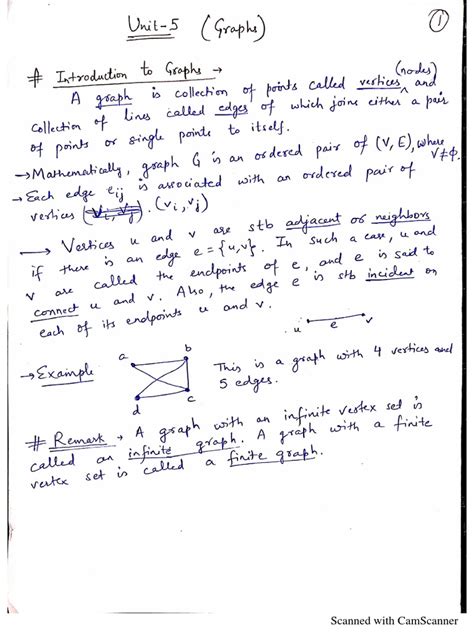 Unit-5 (Graphs) 1
# Introduction to Graphs →
(nodes)
A graph is collection of points called vertices and
collection of lines called edges of which joins either a pair
of points or single points to itself.
→ Mathematically, graph G is an ordered pair of (V, E), where V≠Φ.
→ Each edge eij is associated with an ordered pair of
vertices (Vi, Vj). (vi, vj)
→ Vertices u and v are stb adjacent or neighbors
if there is an edge e = {u,v}. In such a case, u and
v are called the endpoints of e, and e is said to
connect u and v. Also, the edge e is stb incident on
each of its endpoints u and v.
u e v
→ Example
a b
d c
This is a graph with 4 vertices and
5 edges.
# Remark → A graph with an infinite vertex set is
called an infinite graph. A graph with a finite
vertex set is called a finite graph.
Scanned with CamScanner